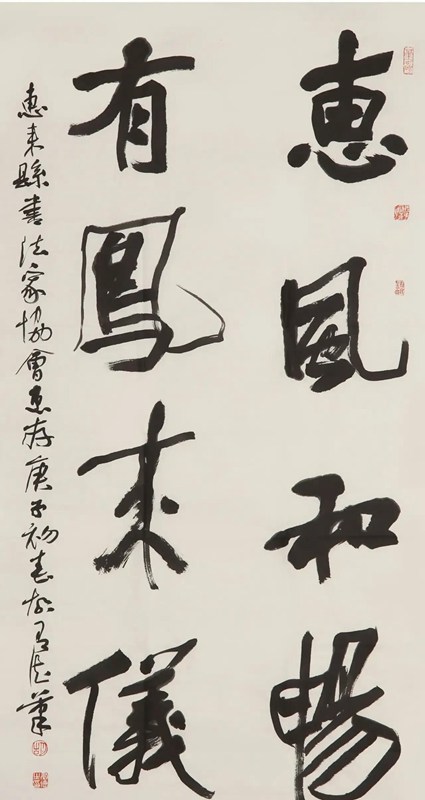 惠風和暢
有鳳来儀
惠来縣書法家協會惠存庚子初春